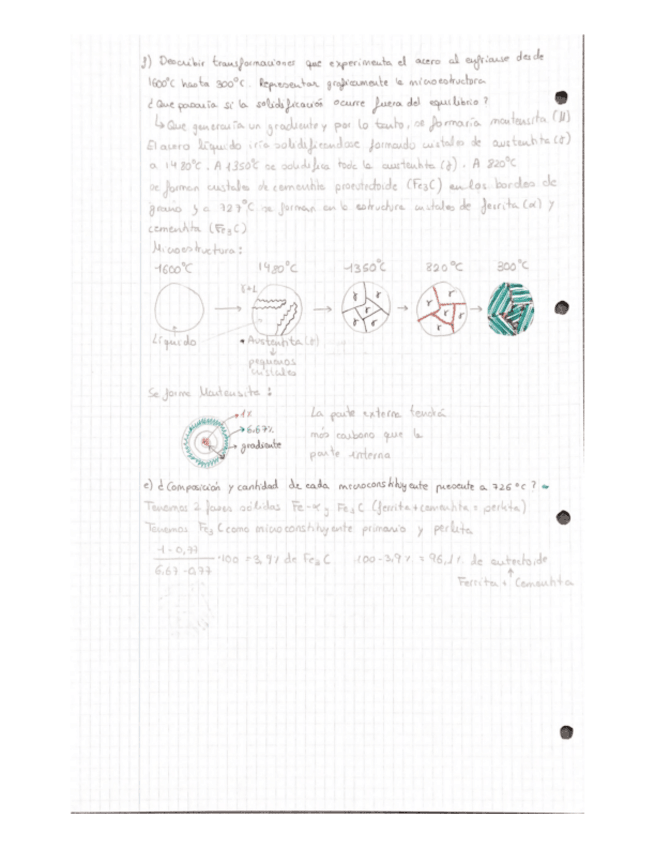 g) Describir transformaciones que experimenta el acero al enfriarse desde
1600°C hasta 300°C. Representar graficamente la microestructura
¿Que pasaria si la solidificación ocurre fuera del equilibrio?
↳ Que generaria un gradiente y por lo tanto, se formaria martensita (M)
El acero líquido iria solidificandose formando cristales de austentita (γ)
a 1480°C. A 1350°C se solidifica toda la austentita (γ). A 820°C
se forman cristales de cementita proeutectoide (Fe₃C) en los bordes de
grano y a 727°C se forman en la estructura cristales de ferrita (α) y
cementita (Fe₃C)
Microestructura:
1600°C 1480°C 1350°C 820°C 300°C
γ+L
γ γ γ γ γ
γ γ γ γ γ
Líquido
• Austentita (γ)
↓
pequeños
cristales
Se forma Martensita:
1%
6.67%
gradiente
La parte externa tendrá
más carbono que la
parte interna
e) ¿Composición y cantidad de cada microconstituyente presente a 726°C?
Tenemos 2 fases sólidas Fe-α y Fe₃C (ferrita + cementita = perlita)
Tenemos Fe₃C como microconstituyente primario y perlita
1-0,77
6.67-0.77
·100 = 3,9% de Fe₃C 100-3,9% = 96,1% de eutectoide
↑
Ferrita + Cementita